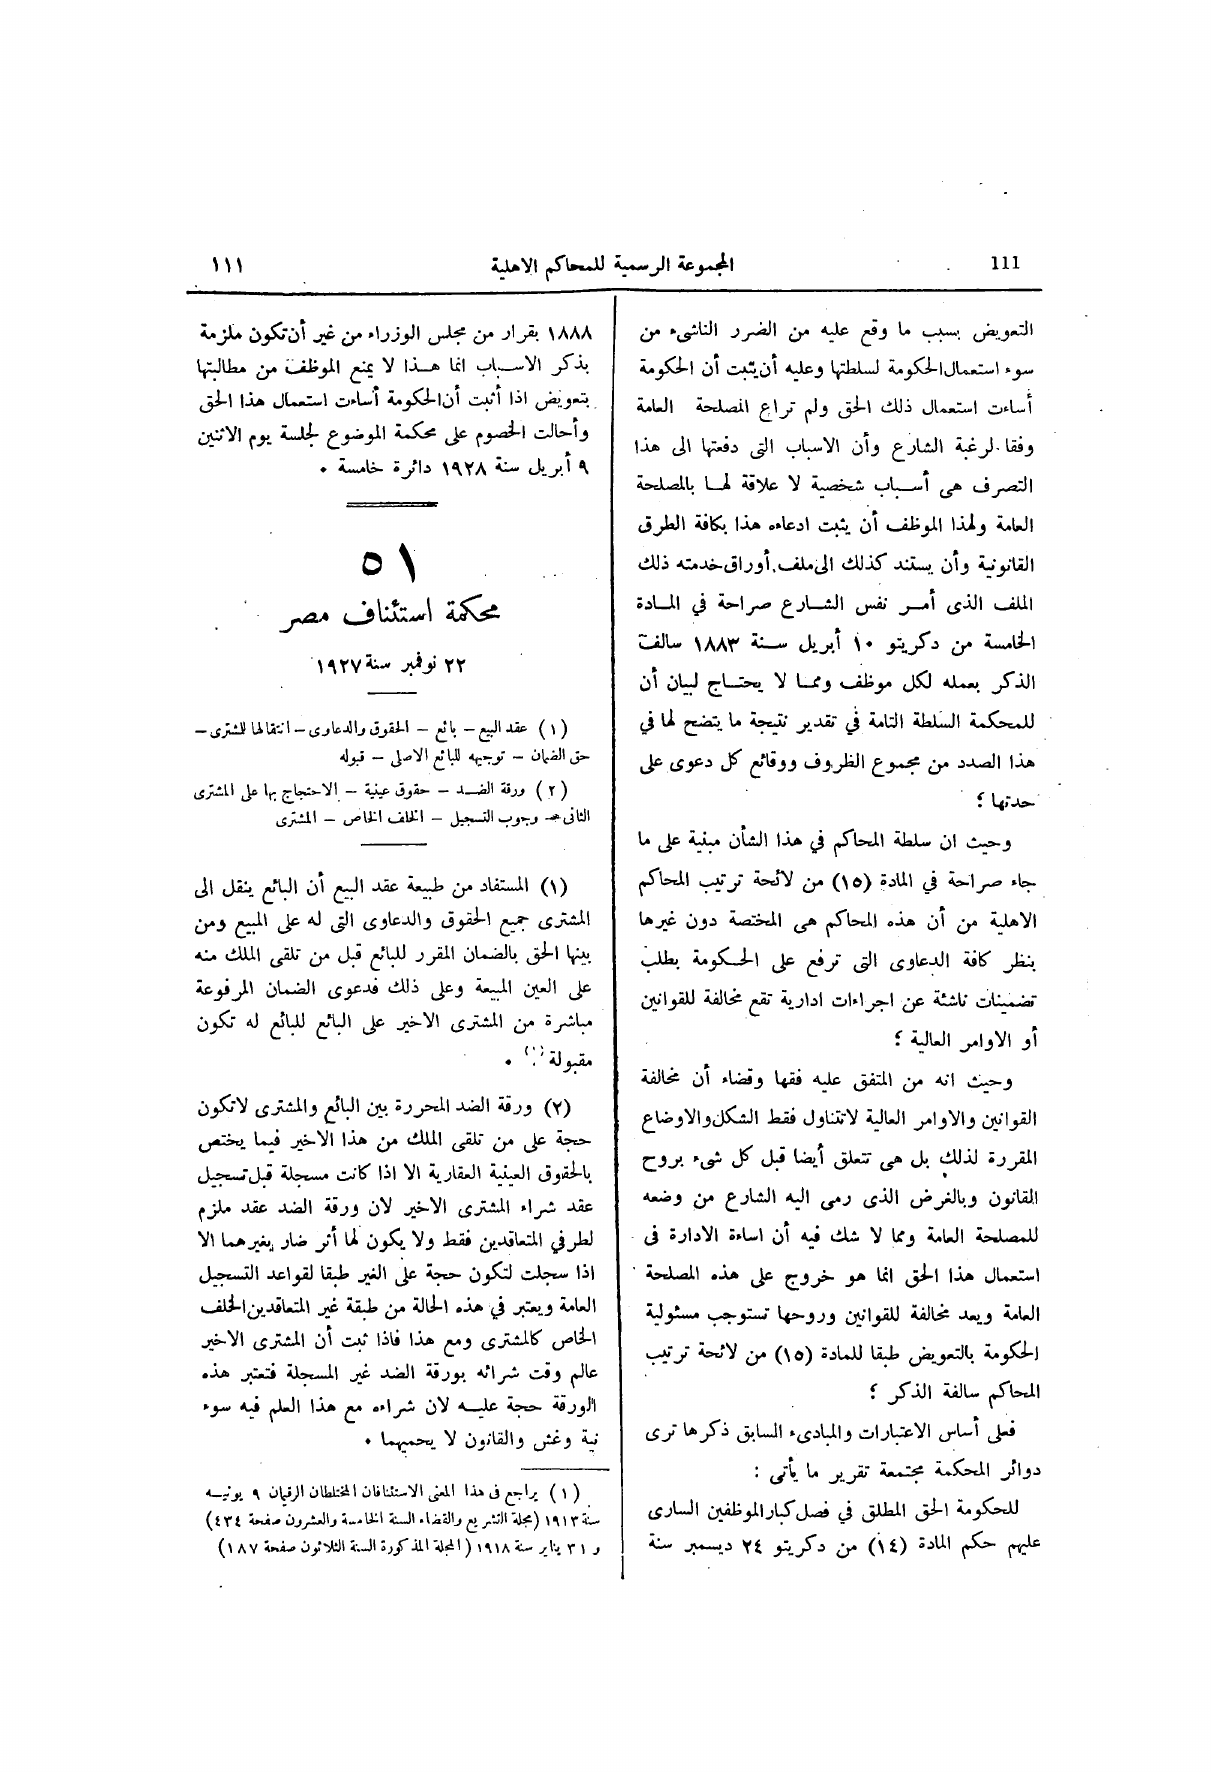 111 المجموعة الرسمية للمحاكم الاهلية ١١١
التعويض بسبب ما وقع عليه من الضرر الناشىء من
سوء استعمال الحكومة لسلطتها وعليه أن يثبت أن الحكومة
أساءت استعمال ذلك الحق ولم تراع المصلحة العامة
وفقا لرغبة الشارع وأن الاسباب التى دفعتها الى هذا
التصرف هى أسباب شخصية لا علاقة لها بالمصلحة
العامة ولهذا الموظف أن يثبت ادعاءه هذا بكافة الطرق
القانونية وأن يستند كذلك الى ملف أوراق خدمته ذلك
الملف الذى أمر نفس الشارع صراحة في المادة
الخامسة من دكريتو ١٠ أبريل سنة ١٨٨٣ سالف
الذكر بعمله لكل موظف ومما لا يحتاج لبيان أن
للمحكمة السلطة التامة في تقدير نتيجة ما يتضح لها في
هذا الصدد من مجموع الظروف ووقائع كل دعوى على
حدتها ؛
وحيث ان سلطة المحاكم في هذا الشأن مبنية على ما
جاء صراحة في المادة (١٥) من لائحة ترتيب المحاكم
الاهلية من أن هذه المحاكم هى المختصة دون غيرها
بنظر كافة الدعاوى التى ترفع على الحكومة بطلب
تضمينات ناشئة عن اجراءات ادارية تقع مخالفة للقوانين
أو الاوامر العالية ؛
وحيث انه من المتفق عليه فقها وقضاء أن مخالفة
القوانين والاوامر العالية لاتتناول فقط الشكل والاوضاع
المقررة لذلك بل هى تتعلق أيضا قبل كل شىء بروح
القانون وبالغرض الذى رمى اليه الشارع من وضعه
للمصلحة العامة ومما لا شك فيه أن اساءة الادارة فى
استعمال هذا الحق انما هو خروج على هذه المصلحة
العامة ويعد مخالفة للقوانين وروحها تستوجب مسئولية
الحكومة بالتعويض طبقا للمادة (١٥) من لائحة ترتيب
المحاكم سالفة الذكر ؛
فعلى أساس الاعتبارات والمبادىء السابق ذكرها ترى
دوائر المحكمة مجتمعة تقرير ما يأتى :
للحكومة الحق المطلق في فصل كبار الموظفين السارى
عليهم حكم المادة (١٤) من دكريتو ٢٤ ديسمبر سنة
١٨٨٨ بقرار من مجلس الوزراء من غير أن تكون ملزمة
بذكر الاسباب انما هذا لا يمنع الموظف من مطالبتها
بتعويض اذا أثبت أن الحكومة أساءت استعمال هذا الحق
وأحالت الخصوم على محكمة الموضوع لجلسة يوم الاثنين
٩ أبريل سنة ١٩٢٨ دائرة خامسة .
٥١
محكمة استئناف مصر
٢٢ نوفمبر سنة ١٩٢٧
(١) عقد البيع – بائع – الحقوق والدعاوى – انتقالها للمشترى –
حق الضمان – توجيهه للبائع الاصلى – قبوله
(٢) ورقة الضد – حقوق عينية – الاحتجاج بها على المشترى
الثانى – وجوب التسجيل – الخلف الخاص – المشترى
(١) المستفاد من طبيعة عقد البيع أن البائع ينقل الى
المشترى جميع الحقوق والدعاوى التى له على المبيع ومن
بينها الحق بالضمان المقرر للبائع قبل من تلقى الملك منه
على العين المبيعة وعلى ذلك فدعوى الضمان المرفوعة
مباشرة من المشترى الاخير على البائع للبائع له تكون
مقبولة (١) .
(٢) ورقة الضد المحررة بين البائع والمشترى لاتكون
حجة على من تلقى الملك من هذا الاخير فيما يختص
بالحقوق العينية العقارية الا اذا كانت مسجلة قبل تسجيل
عقد شراء المشترى الاخير لان ورقة الضد عقد ملزم
لطرفي المتعاقدين فقط ولا يكون لها أثر ضار بغيرهما الا
اذا سجلت لتكون حجة على الغير طبقا لقواعد التسجيل
العامة ويعتبر في هذه الحالة من طبقة غير المتعاقدين الخلف
الخاص كالمشترى ومع هذا فاذا ثبت أن المشترى الاخير
عالم وقت شرائه بورقة الضد غير المسجلة فتعتبر هذه
الورقة حجة عليه لان شراءه مع هذا العلم فيه سوء
نية وغش والقانون لا يحميهما .
(١) يراجع فى هذا المعنى الاستئنافان المختلطان الرقيمان ٩ يونيه
سنة ١٩١٣ (مجلة التشريع والقضاء السنة الخامسة والعشرون صفحة ٤٣٤)
و ٣١ يناير سنة ١٩١٨ (المجلة المذكورة السنة الثلاثون صفحة ١٨٧)